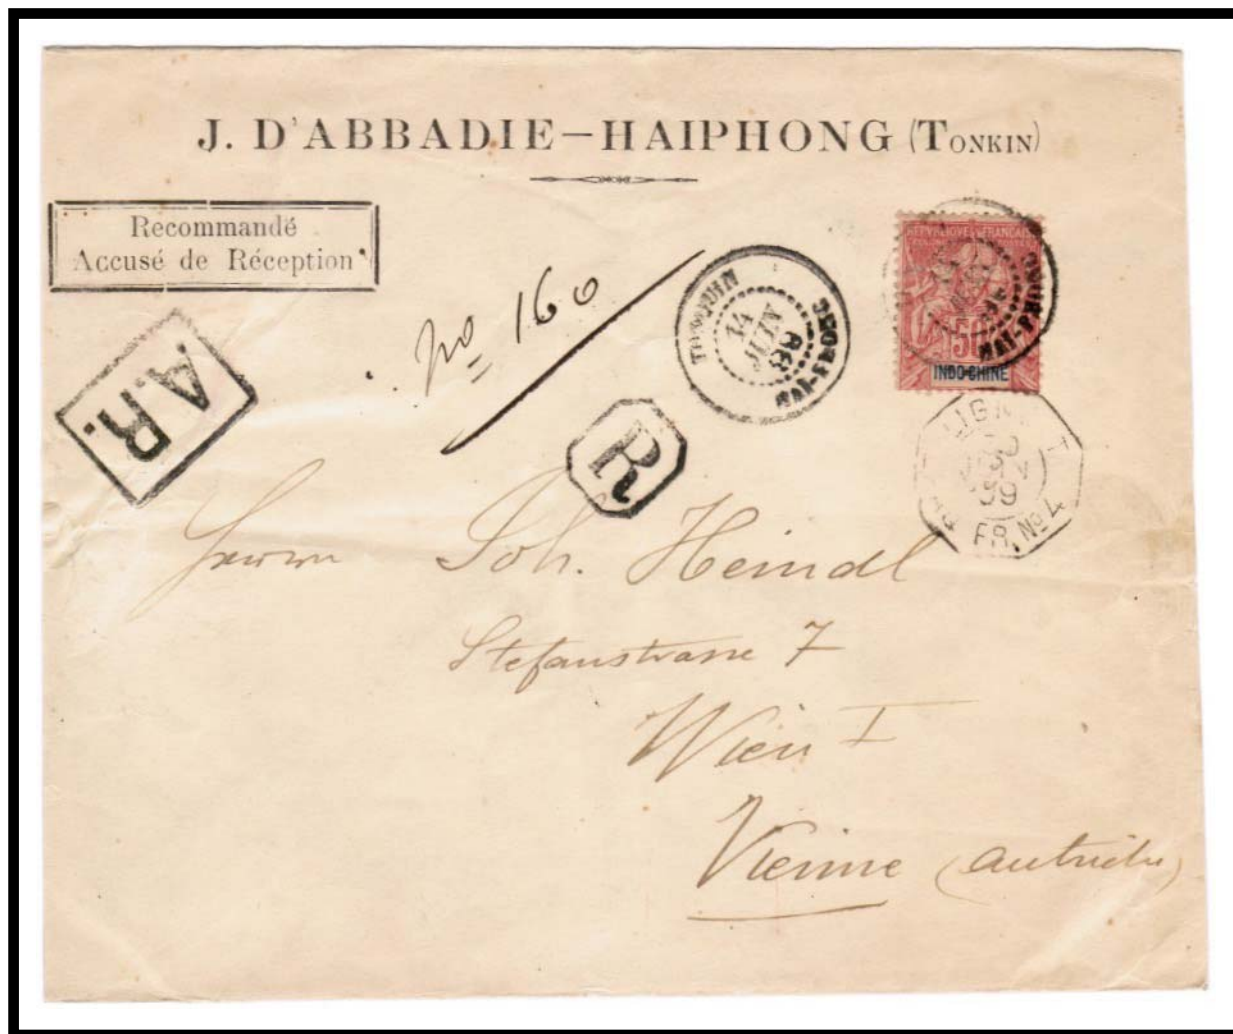 J. D'ABBADIE—HAIPHONG (TONKIN)
Recommandé
Accusé de Réception
A.R.
No 160
HAI-PHONG
14
JUIN
R
REPUBLIQUE FRANCAISE
50
INDO-CHINE
HAI-PHONG
LIGNE T
99
FR. No 4
Herrn Joh. Heindl
Stefanstrasse 7
Wien I
Vienne (Autriche)